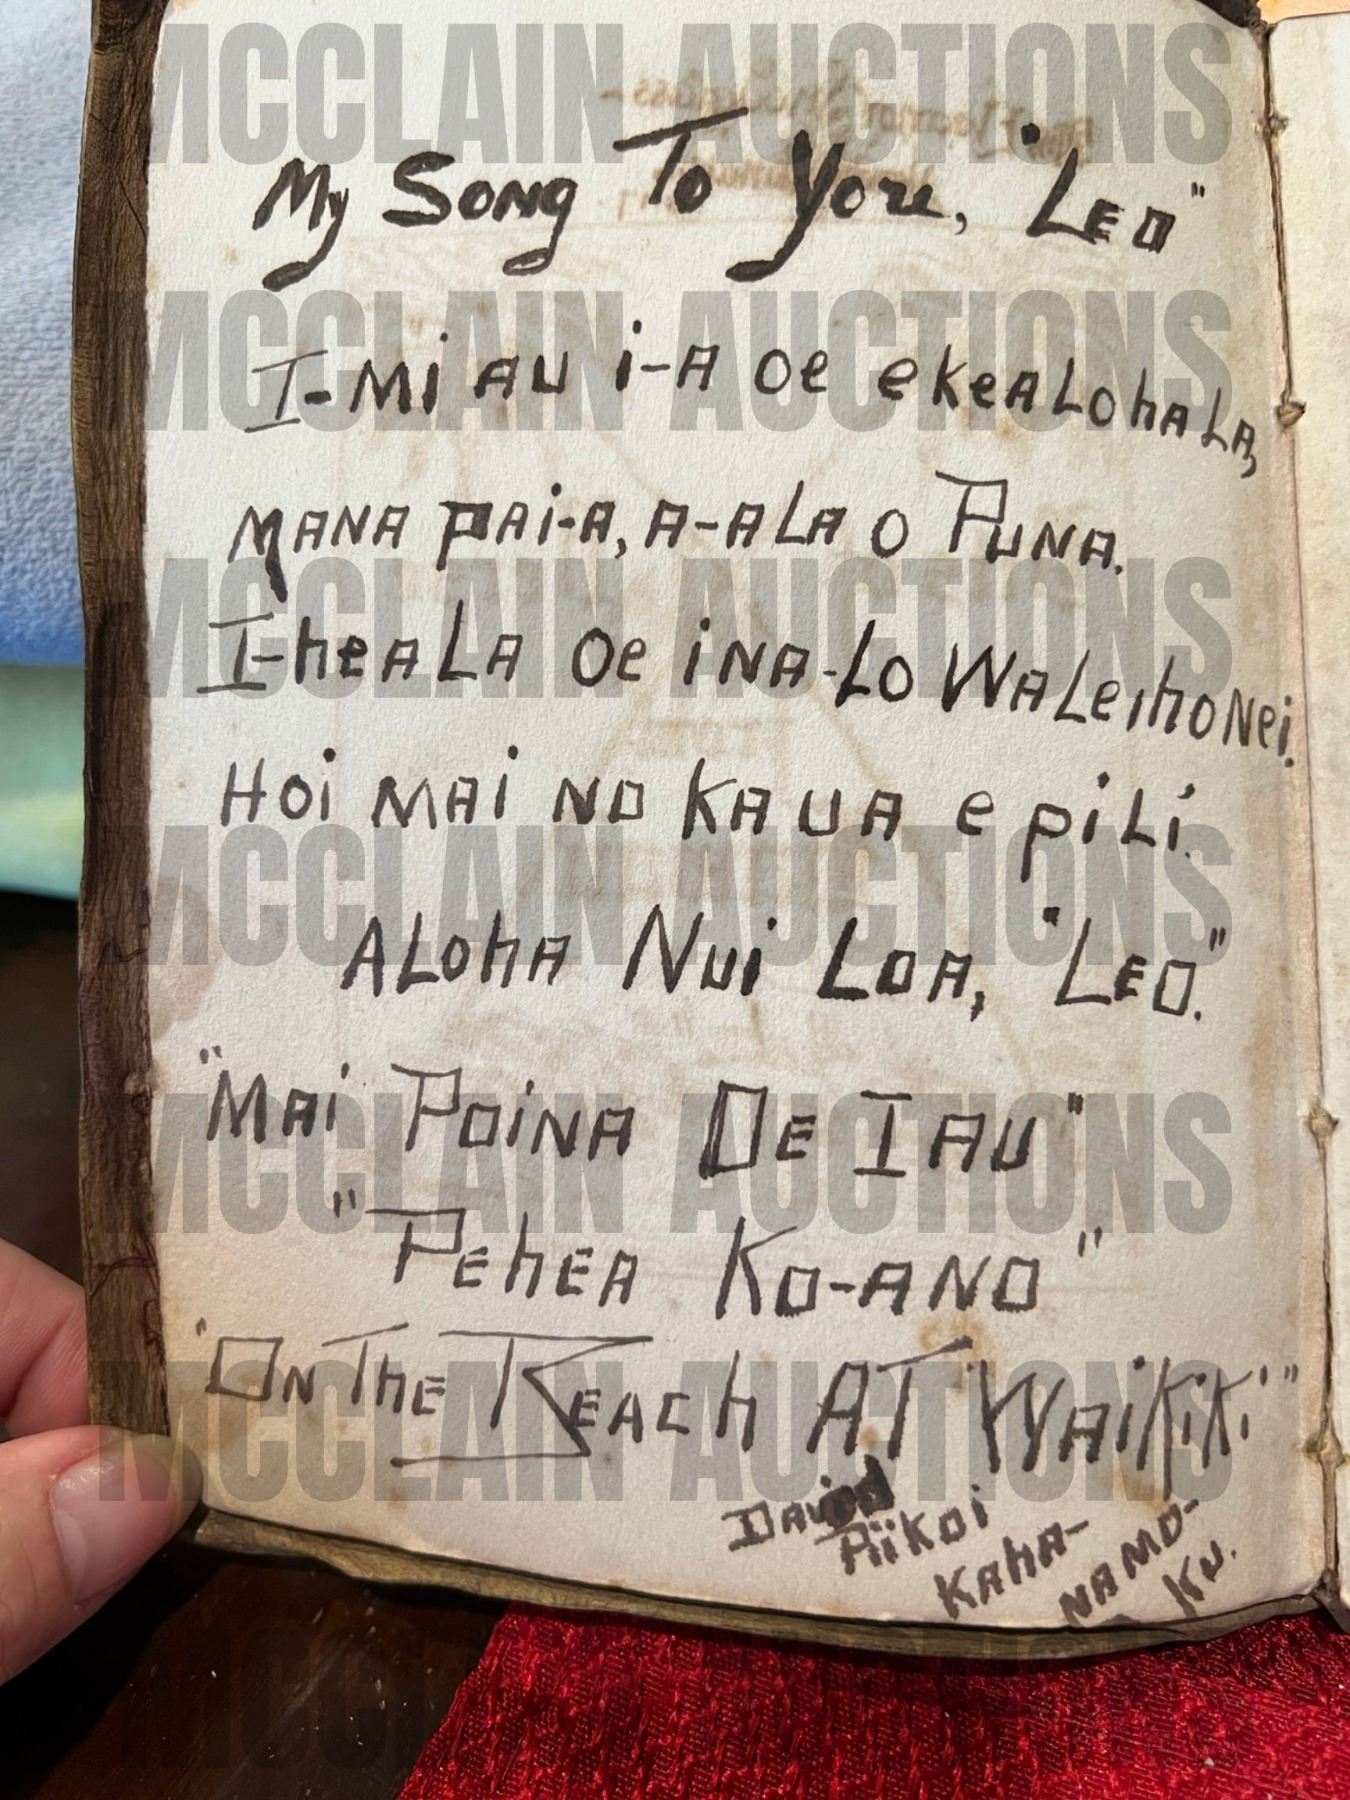 My Song To You, "Leo"
I-mi au i-a oe ekealohala,
mana pai-a, a-ala o Puna.
I-heala oe ina-lo waleihonei.
Hoi mai no kaua e pili.
Aloha Nui Loa, "Leo."
"Mai Poina Oe Iau"
"Pehea Ko-ano"
"On The Beach At Waikiki"
David
Piikoi
Kaha-
namo-
ku.
MCCLAIN AUCTIONS
MCCLAIN AUCTIONS
MCCLAIN AUCTIONS
MCCLAIN AUCTIONS
MCCLAIN AUCTIONS
MCCLAIN AUCTIONS
MCCLAIN AUCTIONS